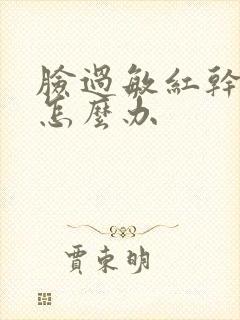 臉過敏紅幹
怎麼办
賈東明